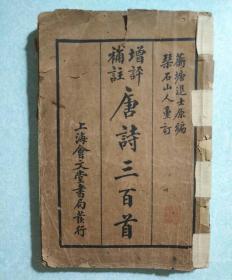 蘅塘退士原編
琴石山人重訂
增評補註
唐詩三百首
上海會文堂書局發行